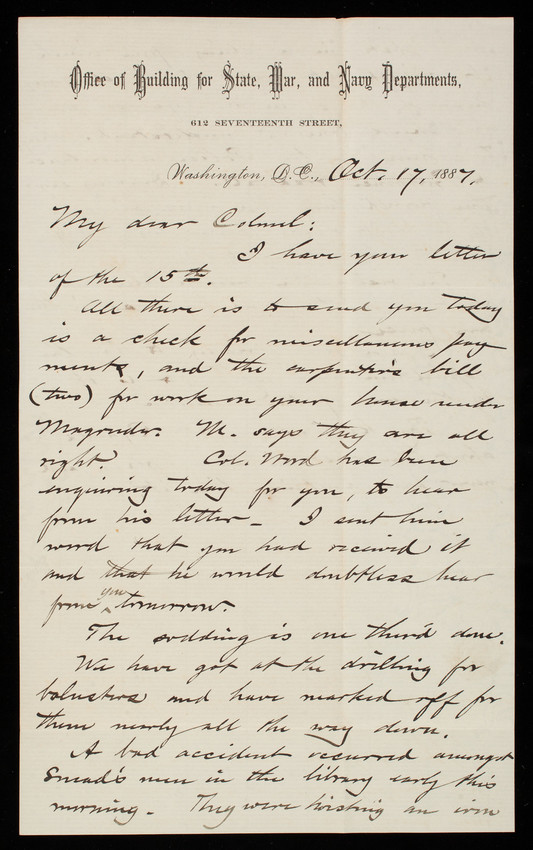 Office of Building for State, War, and Navy Departments,
612 SEVENTEENTH STREET,
Washington, D.C., Oct. 17, 1887.
My dear Colonel:
I have your letter
of the 15th.
All there is to send you today
is a check for miscellaneous pay
ments, and the carpenter's bill
(two) for work on your house under
Magruder. M. says they are all
right. Col. Word has been
enquiring today for you, to hear
from his letter - I sent him
word that you had received it
and that he would doubtless hear
from you tomorrow.
The sodding is one third done.
We have got at the drilling for
balusters and have marked off for
them nearly all the way down.
A bad accident occurred amongst
Snead's men in the library early this
morning - They were hoisting an iron